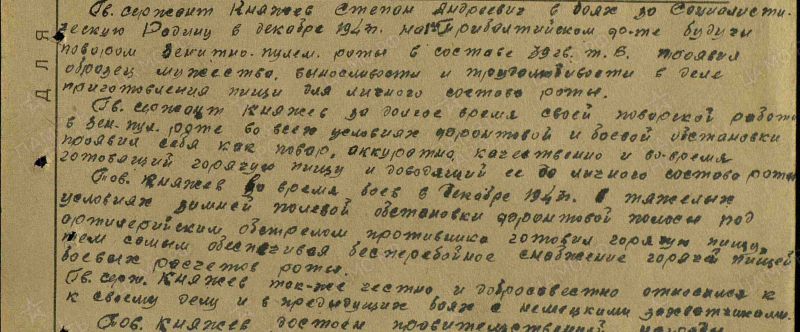 Гв. сержант Княжев Степан Андреевич в боях за Социалисти-
ческую Родину в декабре 194 г. на Прибалтийском фр-те будучи
поваром зенитно-пулем. роты в составе 39 гв. т. б. проявил
образец мужества, выносливости и трудолюбивости в деле
приготовления пищи для личного состава роты.
Гв. сержант Княжев за долгое время своей поварской работы
в зен. пул. роте во всех условиях фронтовой и боевой обстановки
проявил себя как повар, аккуратно, качественно и во-время
готовящий горячую пищу и доводящий ее до личного состава роты
Тов. Княжев во время боев в декабре 194 г. в тяжелых
условиях зимней полевой обстановки фронтовой полосы под
артилерийским обстрелом противника готовил горячую пищу,
тем самым обеспечивая бесперебойное снабжение горячей пищей
боевых расчетов роты.
Гв. серж. Княжев так-же честно и добросовестно относился к
к своему делу и в предыдущих боях с немецкими захватчиками.
Тов. Княжев достоин правительственной награды
ДЛЯ